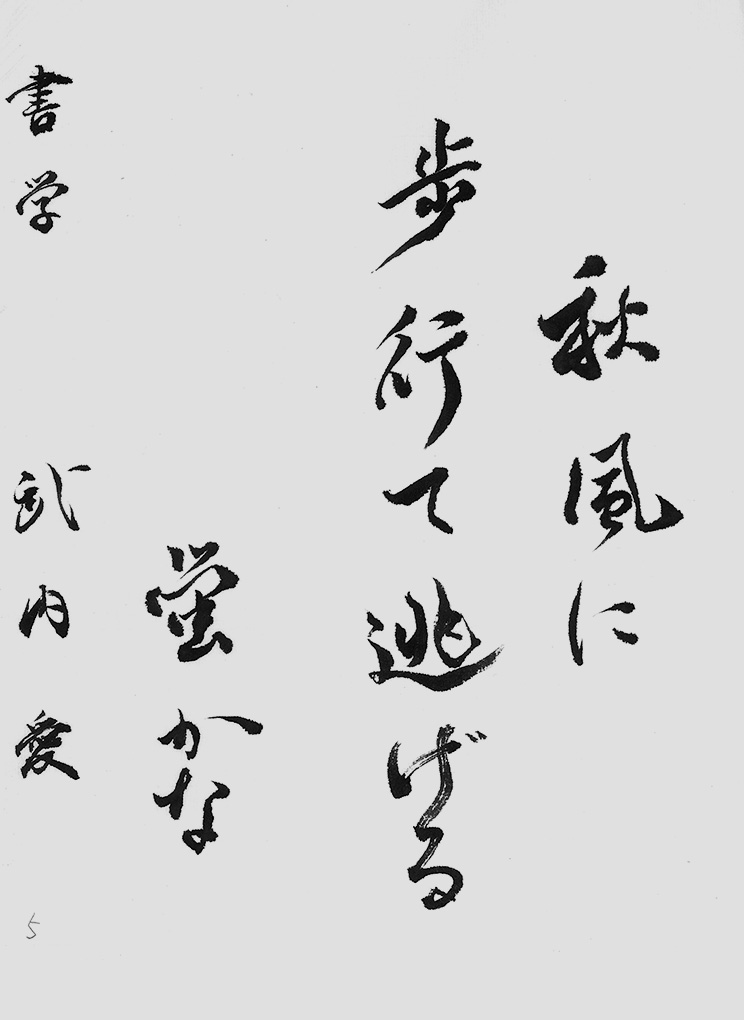 秋風に
歩行て逃げる
蛍かな
書学 武内愛
5